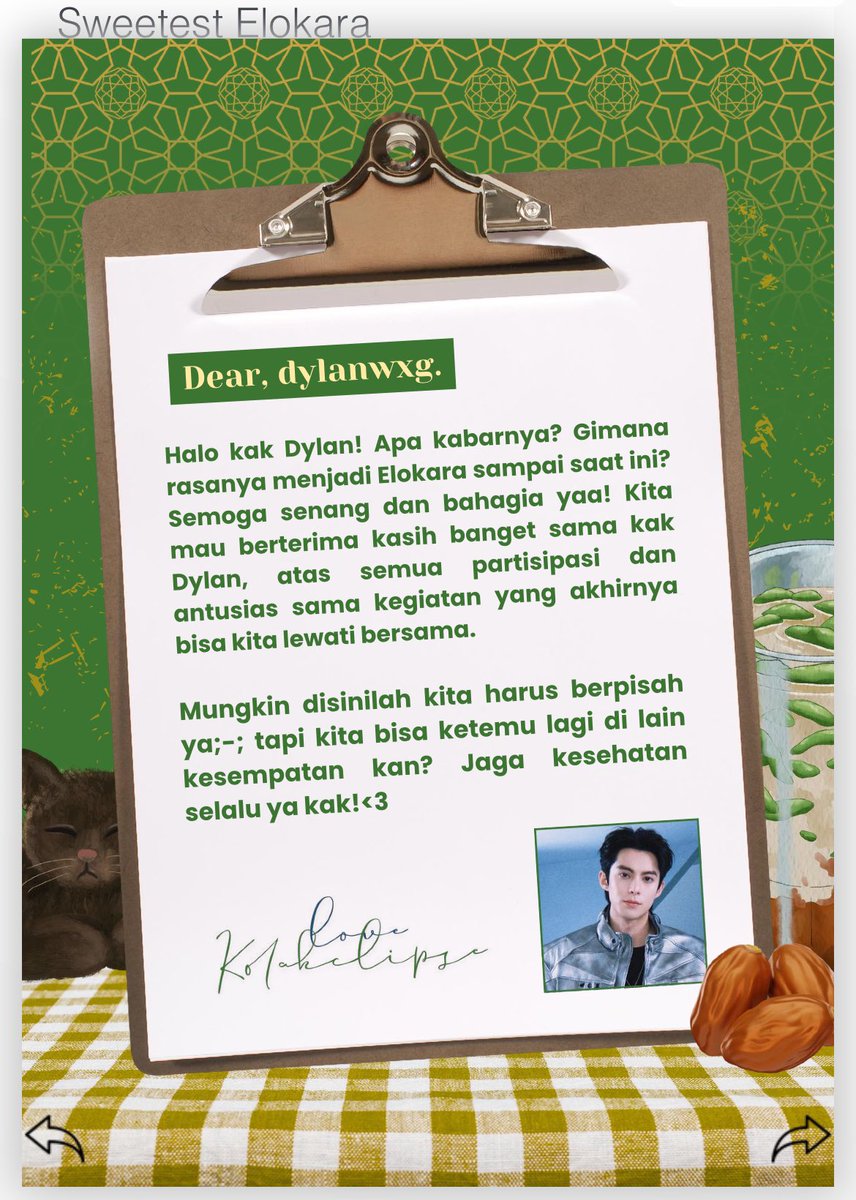 Sweetest Elokara
Dear, dylanwxg.
Halo kak Dylan! Apa kabarnya? Gimana
rasanya menjadi Elokara sampai saat ini?
Semoga senang dan bahagia yaa! Kita
mau berterima kasih banget sama kak
Dylan, atas semua partisipasi dan
antusias sama kegiatan yang akhirnya
bisa kita lewati bersama.
Mungkin disinilah kita harus berpisah
ya;-; tapi kita bisa ketemu lagi di lain
kesempatan kan? Jaga kesehatan
selalu ya kak!<3
love
Kolakelipse